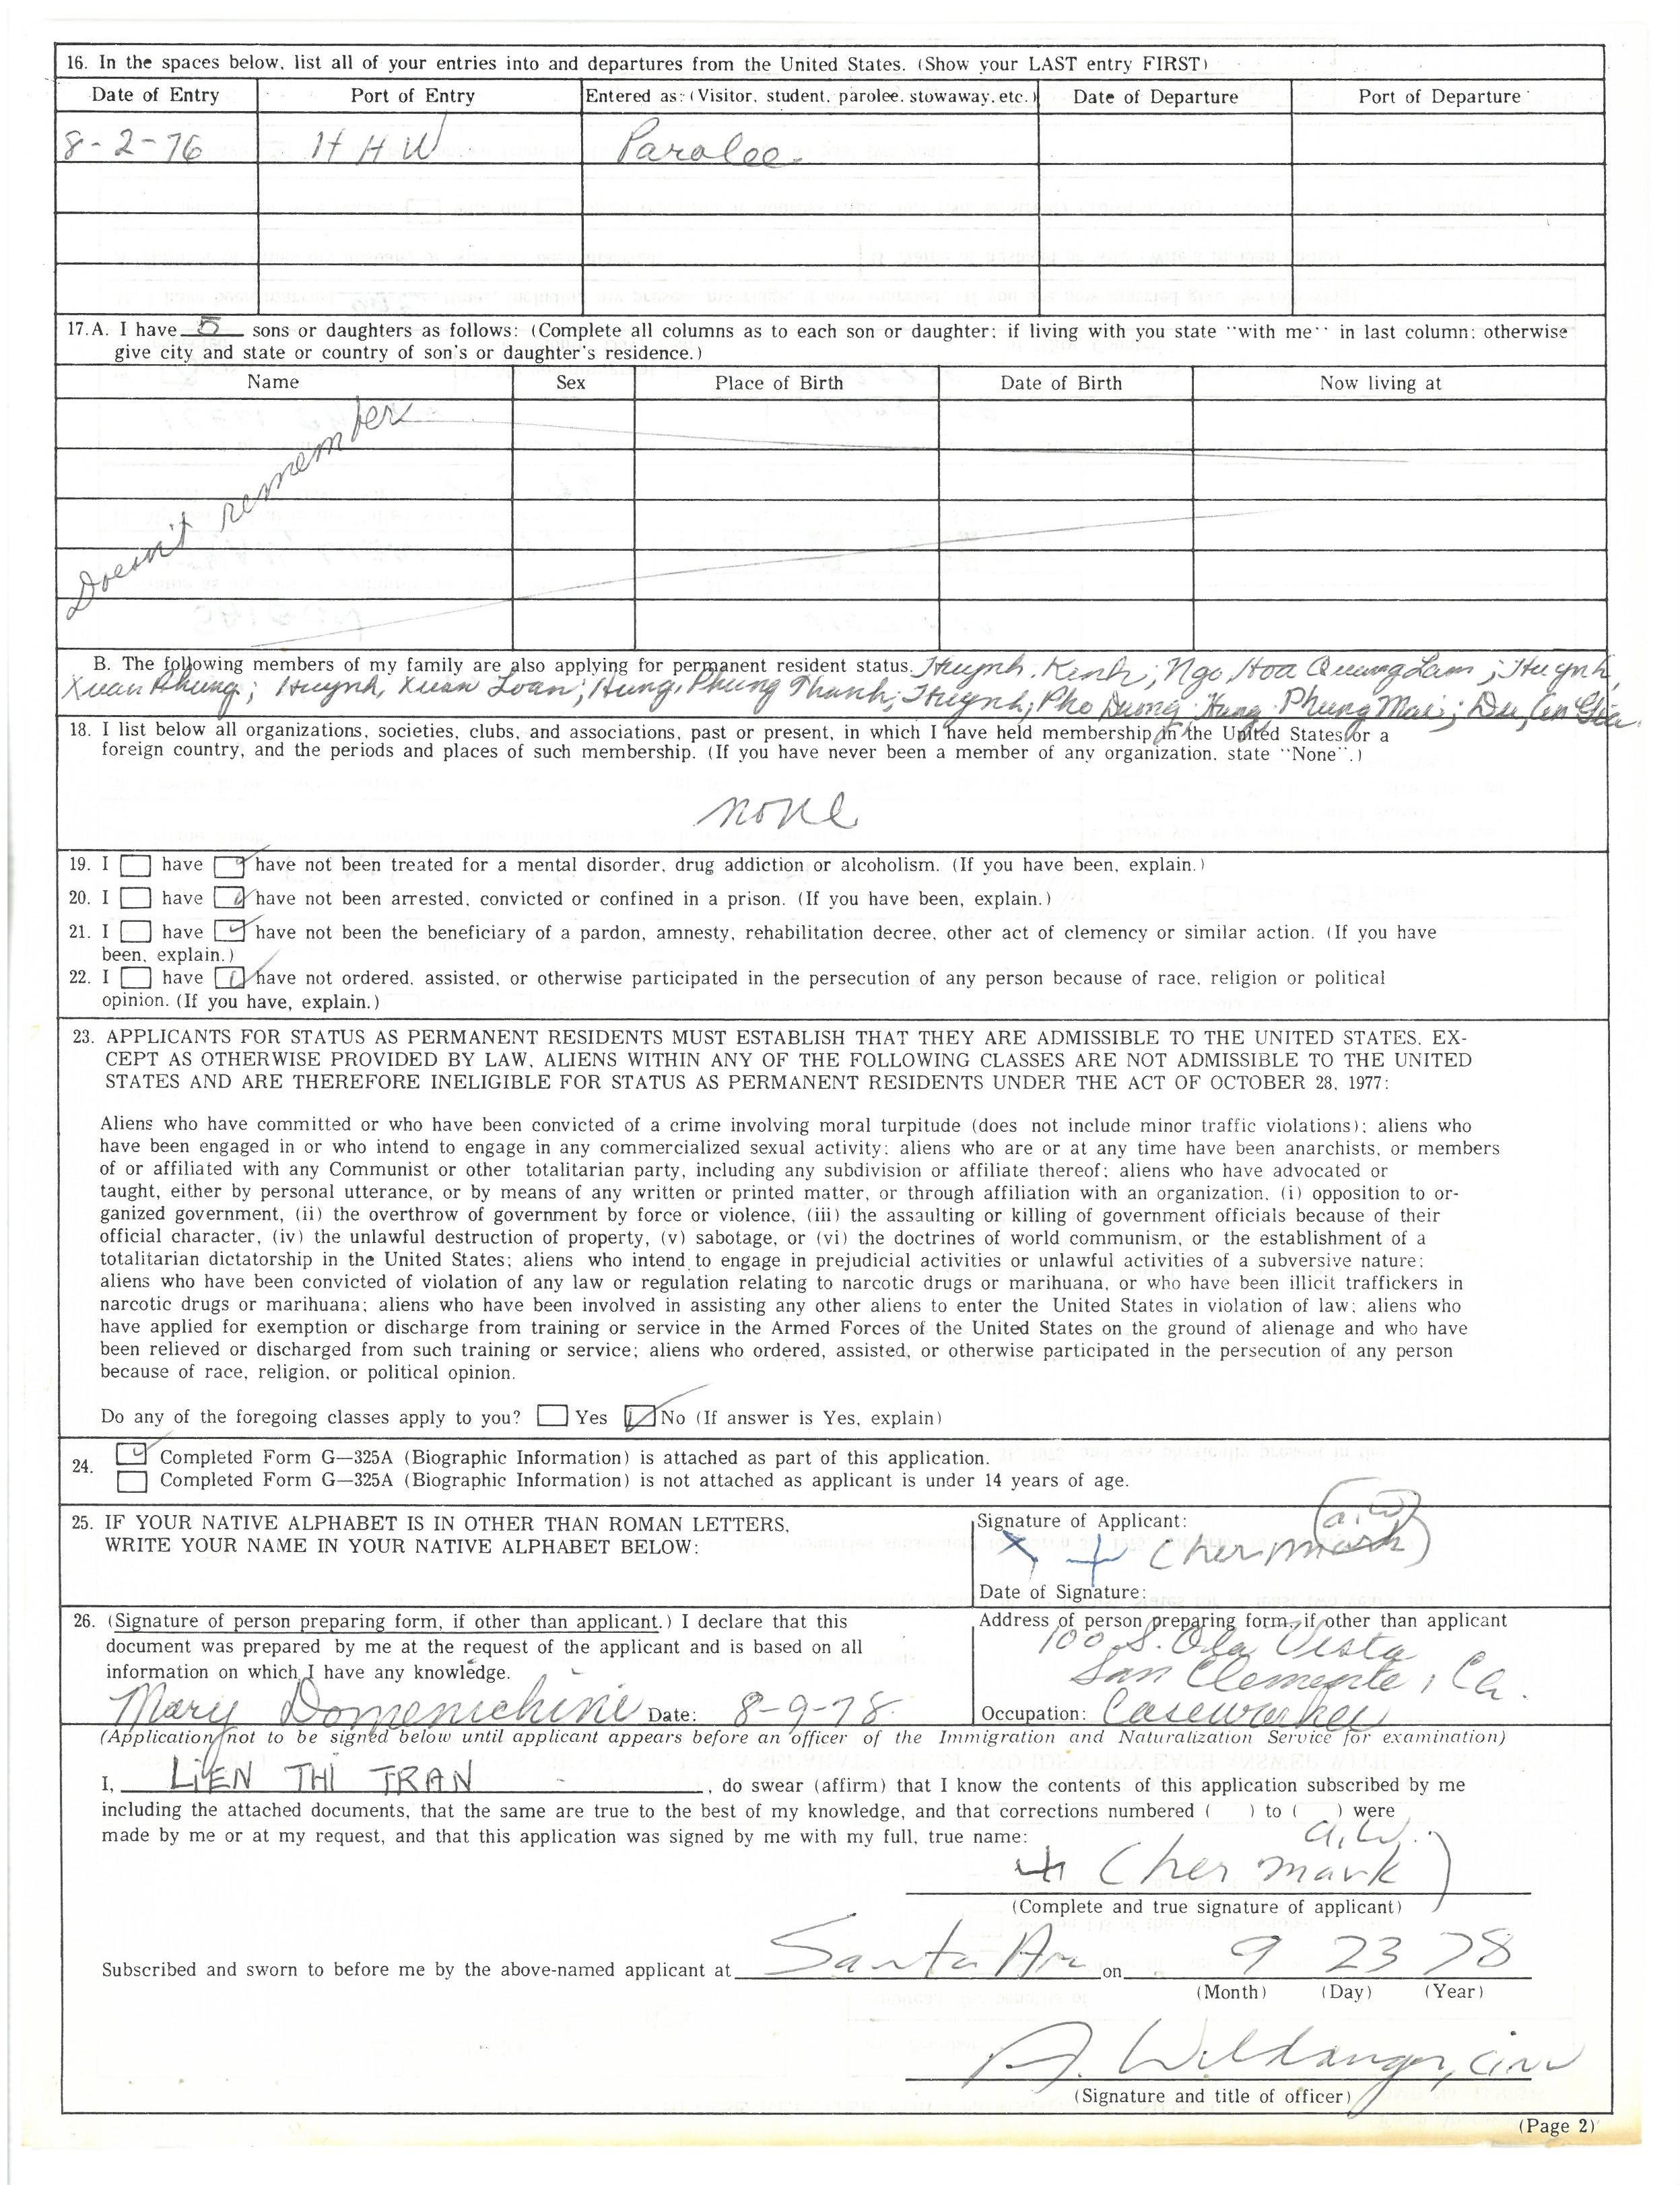 16. In the spaces below, list all of your entries into and departures from the United States. (Show your LAST entry FIRST)
Date of Entry Port of Entry Entered as: (Visitor, student, parolee, stowaway, etc.) Date of Departure Port of Departure
8-2-76 HHW Parolee
17.A. I have 5 sons or daughters as follows: (Complete all columns as to each son or daughter; if living with you state "with me" in last column; otherwise
give city and state or country of son's or daughter's residence.)
Name Sex Place of Birth Date of Birth Now living at
Doesn't remember
B. The following members of my family are also applying for permanent resident status. Huynh, Kinh; Ngo, Hoa Quang Lam; Huynh,
Xuan Phung; Huynh, Xuan Loan; Hung, Phung Thanh; Huynh, Pho Duong; Hung Phung Mai; Du, An Gia
18. I list below all organizations, societies, clubs, and associations, past or present, in which I have held membership in the United States or a
foreign country, and the periods and places of such membership. (If you have never been a member of any organization, state "None".)
none
19. I have have not been treated for a mental disorder, drug addiction or alcoholism. (If you have been, explain.)
20. I have have not been arrested, convicted or confined in a prison. (If you have been, explain.)
21. I have have not been the beneficiary of a pardon, amnesty, rehabilitation decree, other act of clemency or similar action. (If you have
been, explain.)
22. I have have not ordered, assisted, or otherwise participated in the persecution of any person because of race, religion or political
opinion. (If you have, explain.)
23. APPLICANTS FOR STATUS AS PERMANENT RESIDENTS MUST ESTABLISH THAT THEY ARE ADMISSIBLE TO THE UNITED STATES. EX-
CEPT AS OTHERWISE PROVIDED BY LAW, ALIENS WITHIN ANY OF THE FOLLOWING CLASSES ARE NOT ADMISSIBLE TO THE UNITED
STATES AND ARE THEREFORE INELIGIBLE FOR STATUS AS PERMANENT RESIDENTS UNDER THE ACT OF OCTOBER 28, 1977:
Aliens who have committed or who have been convicted of a crime involving moral turpitude (does not include minor traffic violations); aliens who
have been engaged in or who intend to engage in any commercialized sexual activity; aliens who are or at any time have been anarchists, or members
of or affiliated with any Communist or other totalitarian party, including any subdivision or affiliate thereof; aliens who have advocated or
taught, either by personal utterance, or by means of any written or printed matter, or through affiliation with an organization, (i) opposition to or-
ganized government, (ii) the overthrow of government by force or violence, (iii) the assaulting or killing of government officials because of their
official character, (iv) the unlawful destruction of property, (v) sabotage, or (vi) the doctrines of world communism, or the establishment of a
totalitarian dictatorship in the United States; aliens who intend to engage in prejudicial activities or unlawful activities of a subversive nature;
aliens who have been convicted of violation of any law or regulation relating to narcotic drugs or marihuana, or who have been illicit traffickers in
narcotic drugs or marihuana; aliens who have been involved in assisting any other aliens to enter the United States in violation of law; aliens who
have applied for exemption or discharge from training or service in the Armed Forces of the United States on the ground of alienage and who have
been relieved or discharged from such training or service; aliens who ordered, assisted, or otherwise participated in the persecution of any person
because of race, religion, or political opinion.
Do any of the foregoing classes apply to you? Yes No (If answer is Yes, explain)
24. Completed Form G—325A (Biographic Information) is attached as part of this application.
Completed Form G—325A (Biographic Information) is not attached as applicant is under 14 years of age.
25. IF YOUR NATIVE ALPHABET IS IN OTHER THAN ROMAN LETTERS,
WRITE YOUR NAME IN YOUR NATIVE ALPHABET BELOW:
Signature of Applicant: a.w.
X + (her mark)
Date of Signature:
26. (Signature of person preparing form, if other than applicant.) I declare that this
document was prepared by me at the request of the applicant and is based on all
information on which I have any knowledge.
Mary Domenichini Date: 8-9-78
Address of person preparing form, if other than applicant
100 S. Ola Vista
San Clemente, Ca.
Occupation: Caseworker
(Application not to be signed below until applicant appears before an officer of the Immigration and Naturalization Service for examination)
I, LIEN THI TRAN, do swear (affirm) that I know the contents of this application subscribed by me
including the attached documents, that the same are true to the best of my knowledge, and that corrections numbered ( ) to ( ) were
made by me or at my request, and that this application was signed by me with my full, true name:
a.w.
+ (her mark)
(Complete and true signature of applicant)
Subscribed and sworn to before me by the above-named applicant at Santa Ana on 9 23 78
(Month) (Day) (Year)
A. Wildanger,
(Signature and title of officer)
(Page 2)